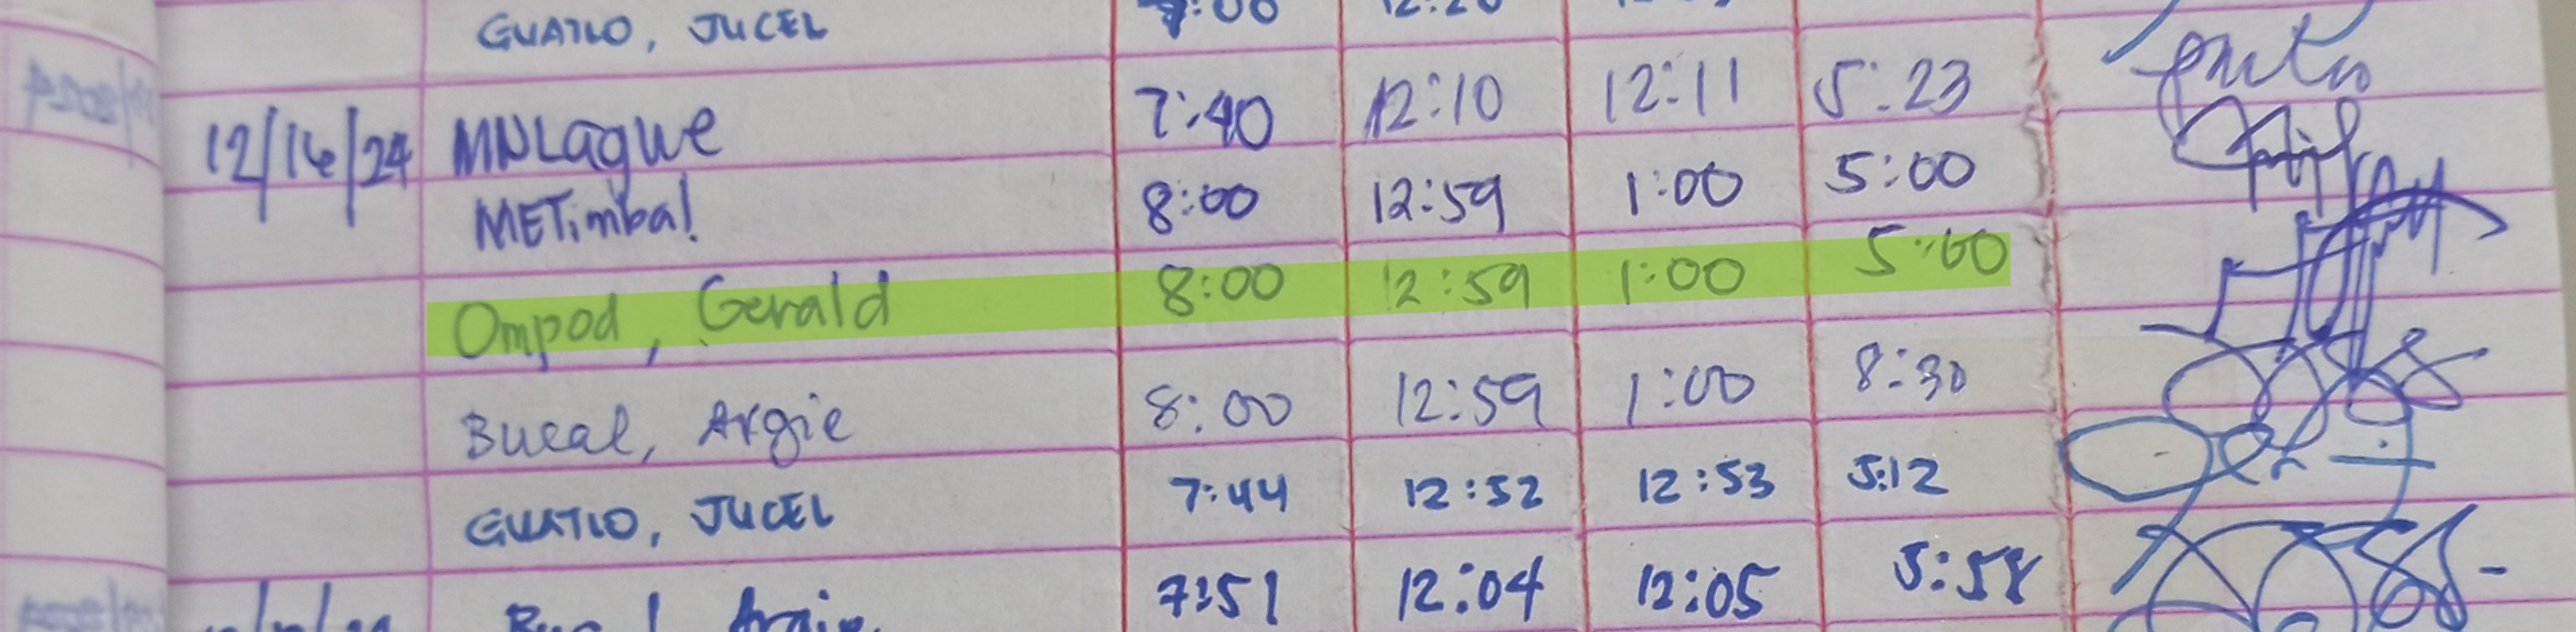 GUATLO, JUCEL 7:00 12:20
12/16/24 MNLague 7:40 12:10 12:11 5:23
METimbal 8:00 12:59 1:00 5:00
Ompod, Gerald 8:00 12:59 1:00 5:00
Bucal, Argie 8:00 12:59 1:00 8:30
GUATLO, JUCEL 7:44 12:52 12:53 5:12
7:51 12:04 12:05 5:58